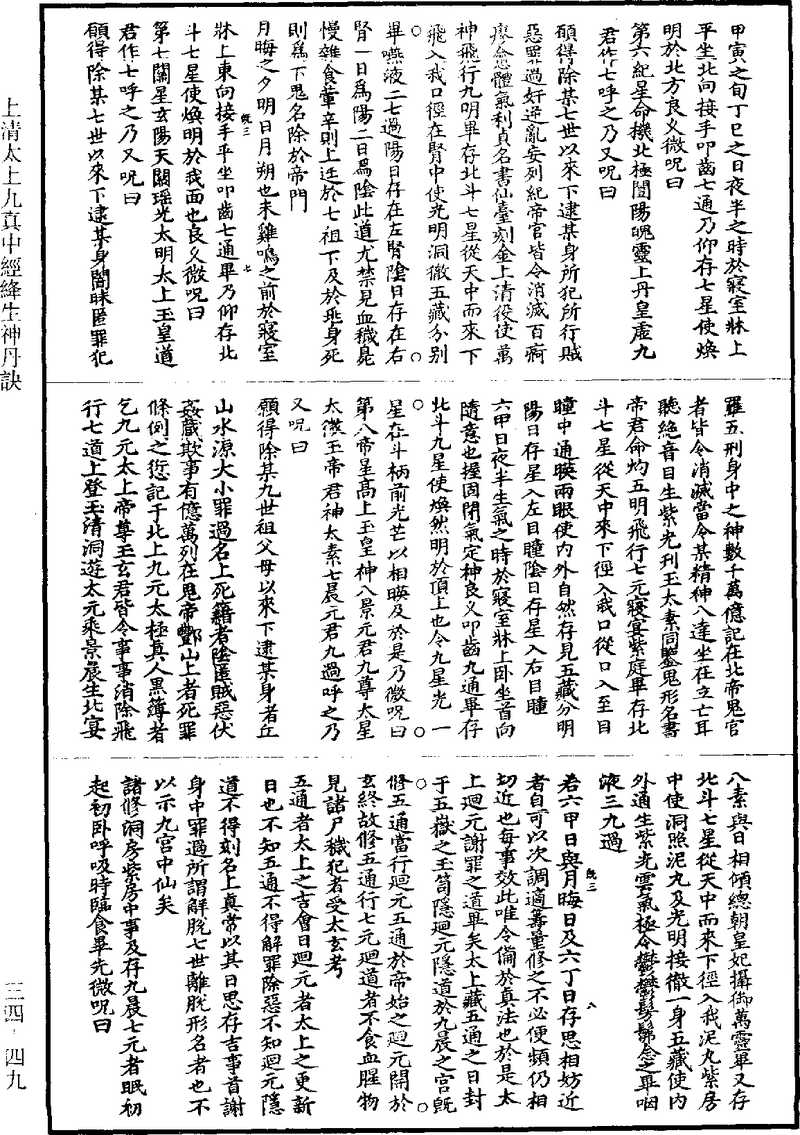 甲寅之旬丁巳之日夜半之時於寢室牀上
平坐北向接手叩齒七通乃仰存七星使煥
明於北方良久微呪曰
第六紀星命機北極闓陽魄靈上丹皇虛九
君作七呼之乃又呪曰
願得除某七世以來下逮某身所犯所行賊
惡罪過奸逆亂妄列紀帝官皆令消滅百痾
廖愈體氣利貞名書仙臺刻金上清役使萬
神飛行九明畢存北斗七星從天中而來下
飛入我口徑在腎中使光明洞徹五藏分別
畢嚥液二七過陽日存在左腎陰日存在右
腎一日爲陽二日爲陰此道尤禁見血穢毙
慢雜食葷辛則上迕於七祖下及於亟身死
則爲下鬼名除於帝門
月晦之夕明日月朔也未雞鳴之前於寢室
牀上東向接手平坐叩齒七通畢乃仰存北
斗七星使煥明於我面也良久微呪曰
第七關星玄陽天關瑶光太明太上玉皇道
君作七呼之乃又呪曰
願得除某七世以來下逮某身闇昧匿罪犯
羅五刑身中之神數千萬億記在北帝鬼官
者皆令消滅當令某精神八達坐在立亡耳
聽絶音目生紫光刋玉太素同鑒鬼形名書
帝君命灼五明飛行七元寢宴紫庭畢存北
斗七星從天中來下徑入我口從口入至目
瞳中通暎兩眼使内外自然存見五藏分明
陽日存星入左目瞳陰日存星入右目瞳
六甲日夜半生氣之時於寢室牀上卧坐首向
隨意也握固閉氣定神良久叩齒九通畢存
北斗九星使煥然明於頂上也令九星光一
星在斗柄前光芒以相暎及於是乃微呪曰
第八帝星髙上玉皇神八景元君九尊太星
太微玉帝君神太素七晨元君九過呼之乃
又呪曰
願得除某九世祖父母以來下逮某身者丘
山水源大小罪過名上死籍者陰匿賊惡伏
姦藏欺事有億萬列在鬼帝酆山上者死罪
條例之愆記于北上九元太極真人黒簿者
乞九元太上帝尊玉玄君皆令事事消除飛
行七道上登玉清洞遊太元乘景晨生北宴
八素與日相傾總朝皇妃攝御萬靈畢又存
北斗七星從天中而來下徑入我泥丸紫房
中使洞照泥丸及光明接徹一身五藏使内
外通生紫光雲氣極令鬱鬱髣髴念之畢咽
液三九過
若六甲日與月晦日及六丁日存思相妨近
者自可以次調適籌量修之不必便頻仍相
切近也每事效此唯令偏於真法也於是太
上廻元謝罪之道畢矣太上藏五通之日封
于五嶽之玉笥隱廻元隱道於九晨之宫旣
修五通當行廻元五通於帝始之廻元開於
玄終故修五通行七元廻道者不食血腥物
見諸尸穢犯者受太玄考
五通者太上之吉會日廻元者太上之更新
日也不知五通不得解罪除惡不知廻元隱
道不得刻名上真常以其日思存吉事首謝
身中罪過所謂解脱七世離脱形名者也不
以示九宫中仙矣
諸修洞房紫房中事及存九晨七元者眠初
起初卧呼吸時臨食畢先微呪曰
上清太上九真中經絳生神丹訣
三四·四九